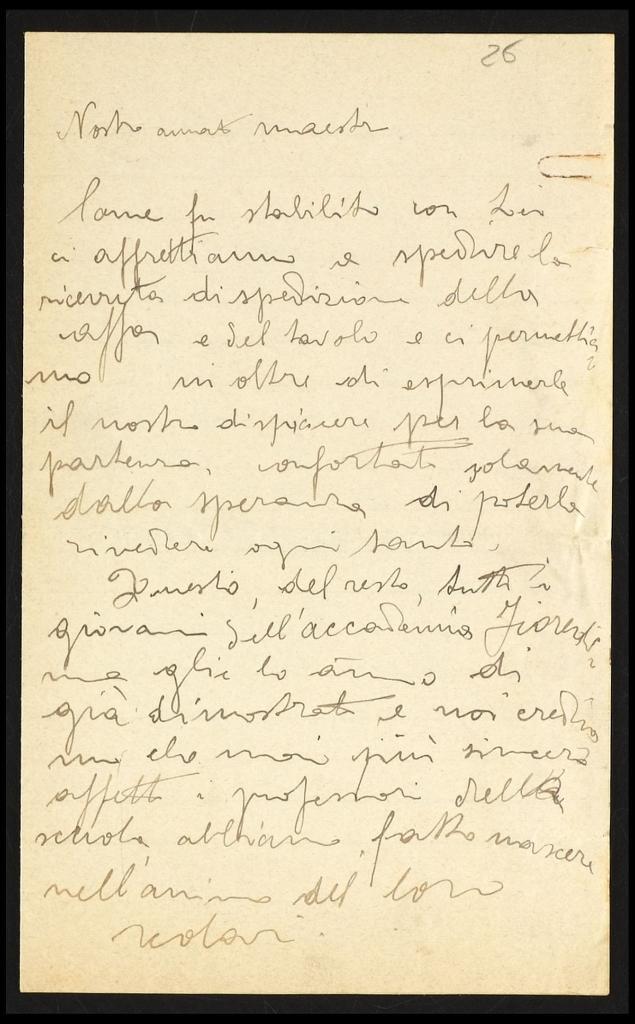 26
Nostro amato maestro
Come fu stabilito con Lei
ci affrettiamo a spedire la
ricevuta di spedizione della
cassa e del tavolo e ci permettia
mo inoltre di esprimerle
il nostro dispiacere per la sua
partenza, confortati solamente
dalla speranza di poterla
rivedere ogni tanto.
Questo, del resto, tutti i
giovani dell'accademia Fiorenti
na glie lo ànno di
già dimostrato e noi credia
mo che mai più sincero
affetto i professori della
scuola abbiano fatto nascere
nell'animo dei loro
scolari.